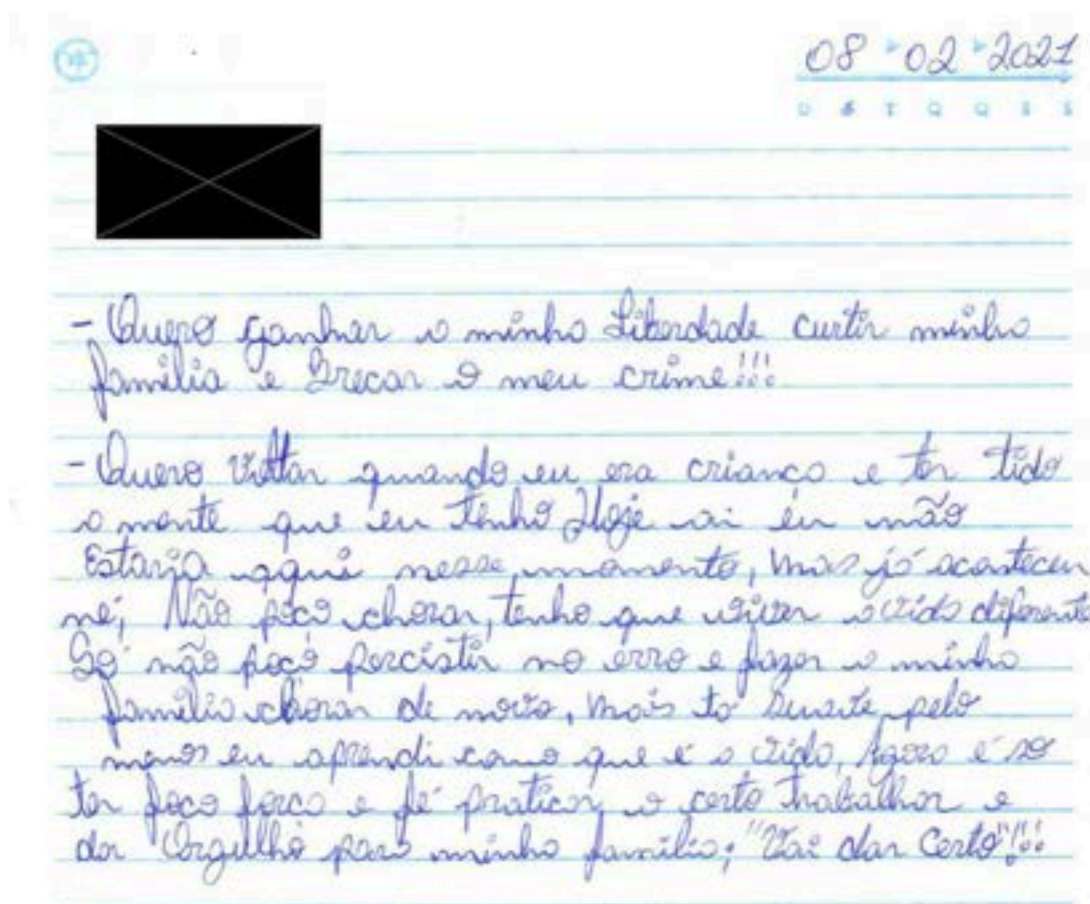 08 02 2021
D S T Q Q S S
- Quero ganhar a minha Liberdade curtir minha
família e o meu crime!!!
- Quero voltar quando eu era criança e ter tido
a mente que eu tenho Hoje ai eu não
Estaria aqui nesse momento, mas já aconteceu
né, Não poço chorar, tenho que viver a vida diferente
Só não poço percistir no erro e fazer a minha
família chorar de novo, mais tô Suave pelo
menos eu aprendi como que é a vida, Agora é só
ter foco força e fé praticar o certo trabalhar e
dar Orgulho para minha família, "Vai dar Certo"!!!